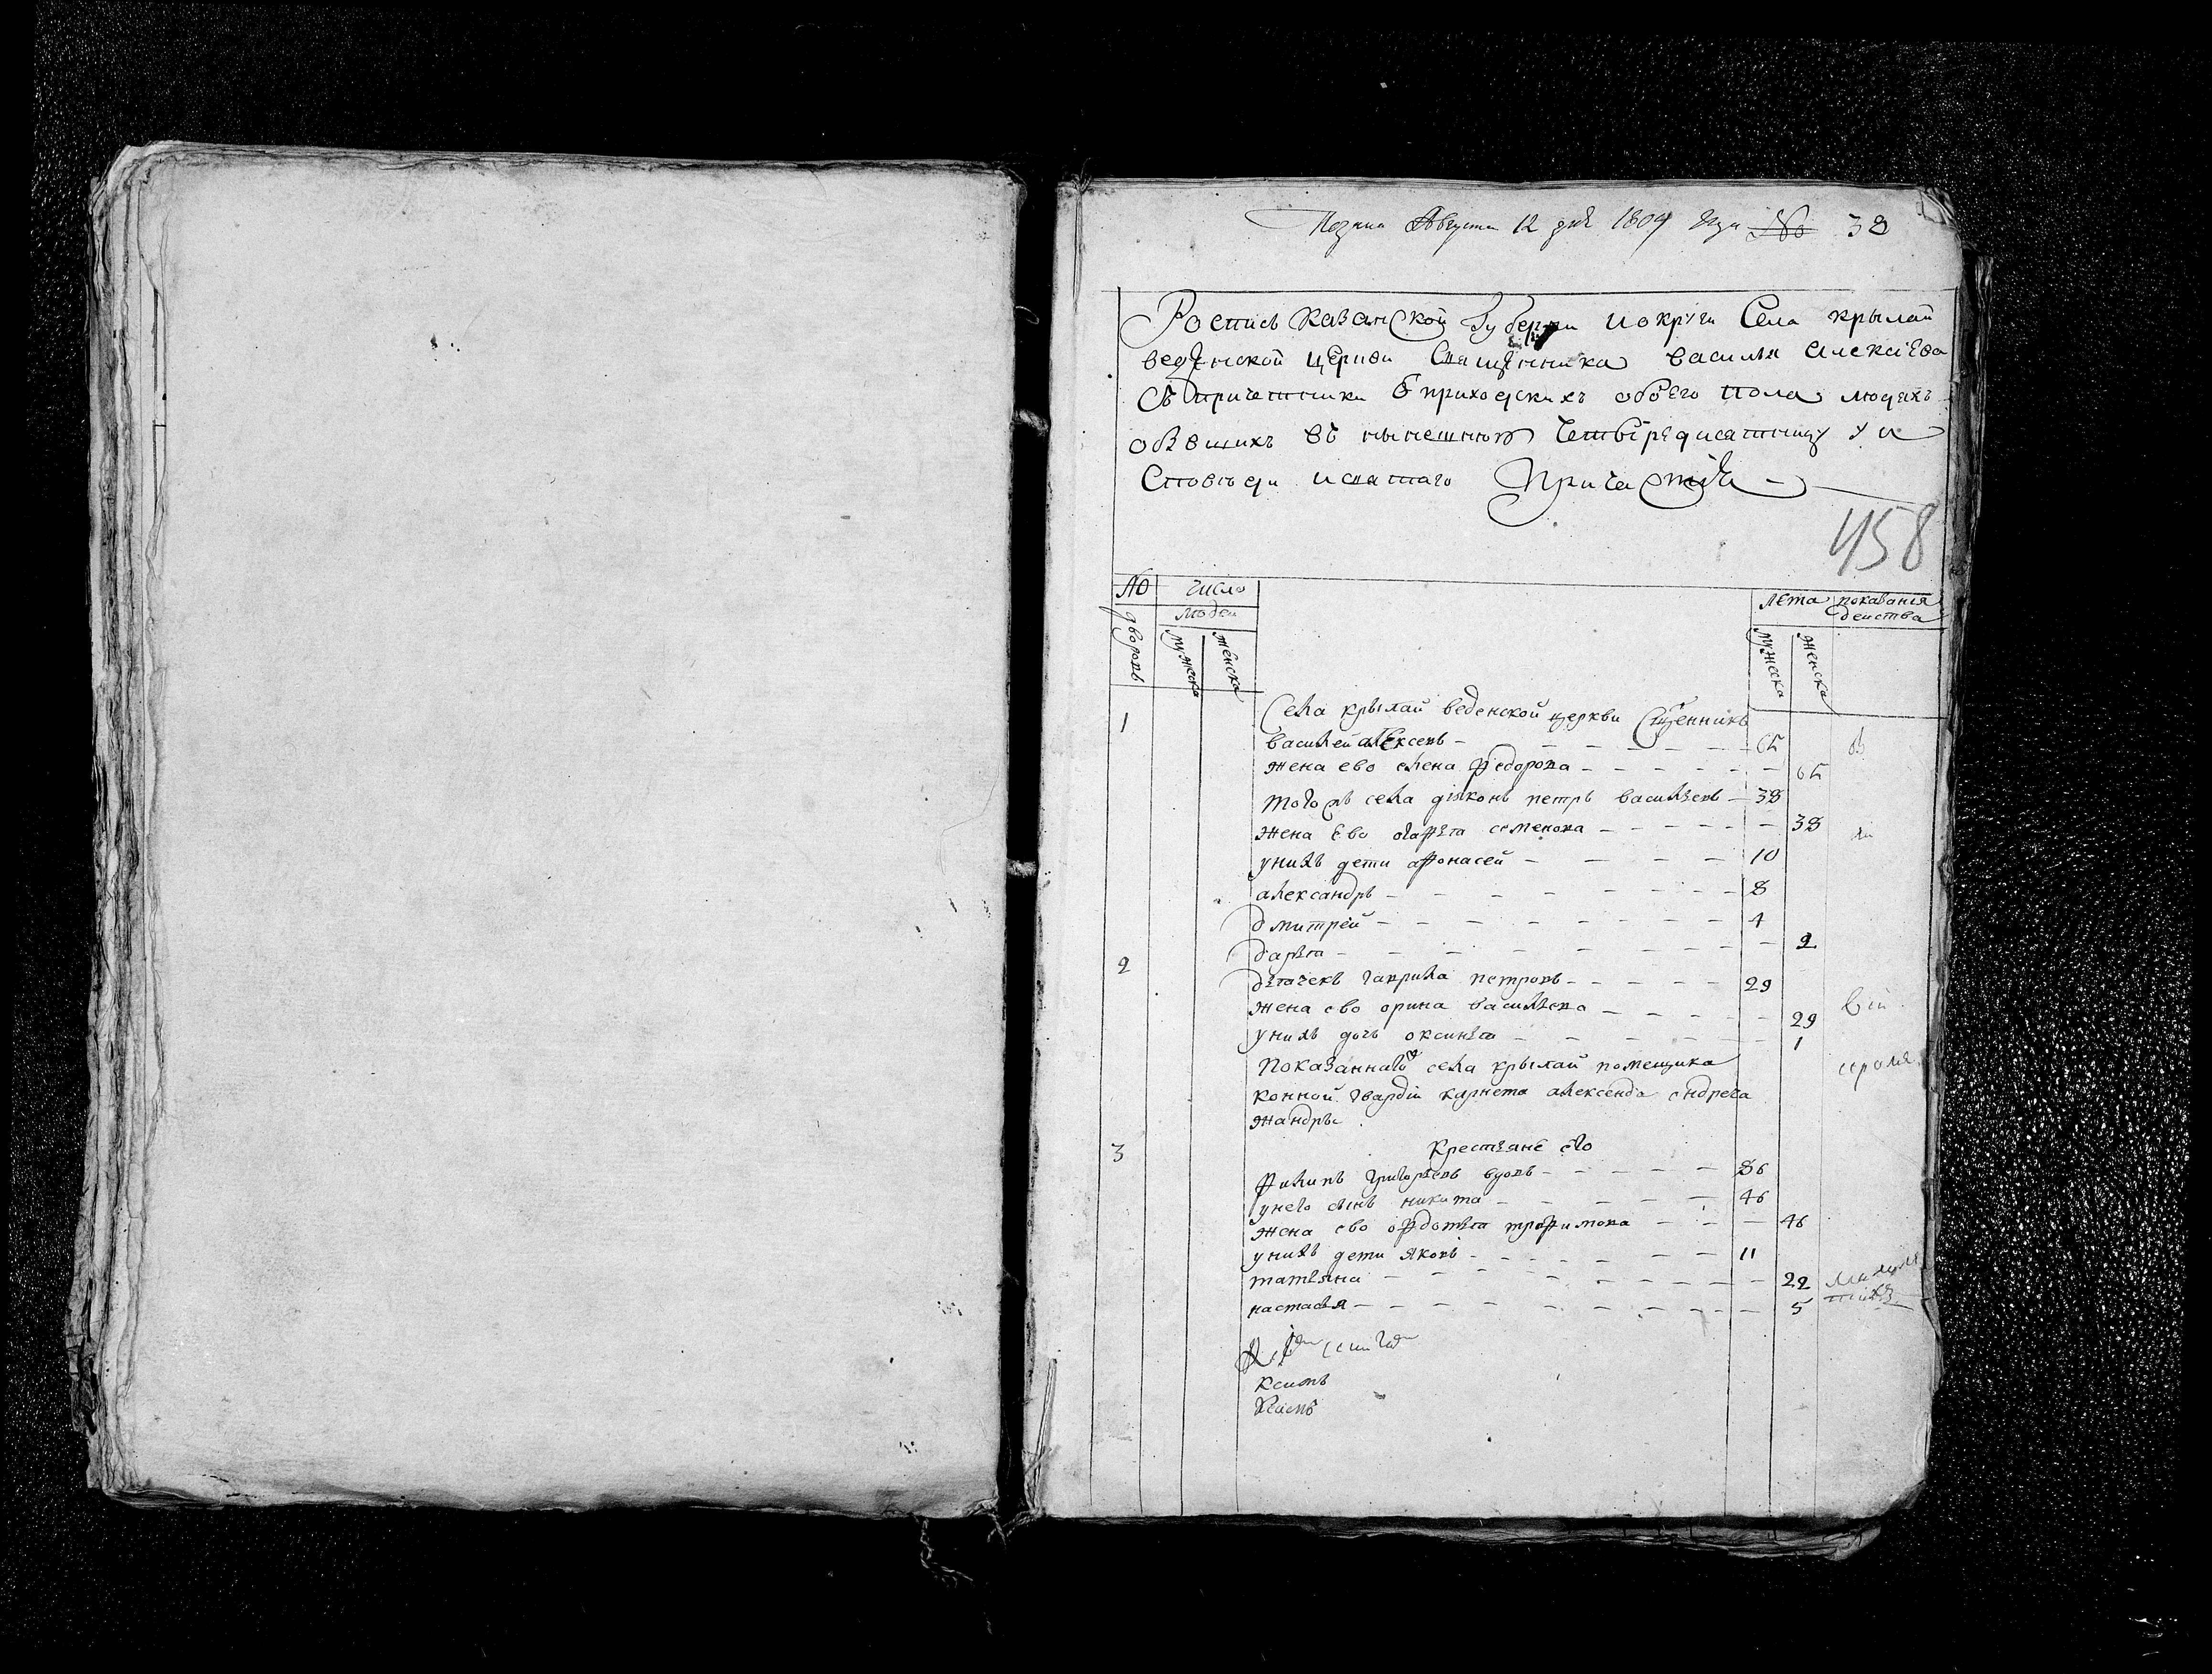 Подана Августа 12 дня 1809 года № 38
Роспись Казанской Губерни и округи Села крылай
веденской церкви Священника василья Алексіева
Съ причетники О приходскихъ обоего пола людяхъ
обвшихъ въ нынешнюю Четыредисатницу У и
Споведи исвятаго Причастія
458
№ дворовъ
число людей
мужеска
женска
Лета
показанія действа
мужеска
женска
1 Села крылай веденской церкви Сщенникъ
василей алексевъ 65
жена ево елена федорова 65
тогожъ села діяконъ петръ васильевъ 38
жена Ево семенова 38
унихъ дети афонасей 10
александръ 8
дмитрей 4
дарья 2
2 дьячекъ гаврила петровъ 29
жена ево орина васильева 29
унихъ дочь оксинья 1
Показаннаго села крылай помещика
конной гвардіи карнета
жандръ
Крестьяне его
3 филипъ григорьевъ вдовъ 86
унего сынъ никита 46
жена ево офдотья трофимова 46
унихъ дети яковъ 11
татьяна 22
настасья 5